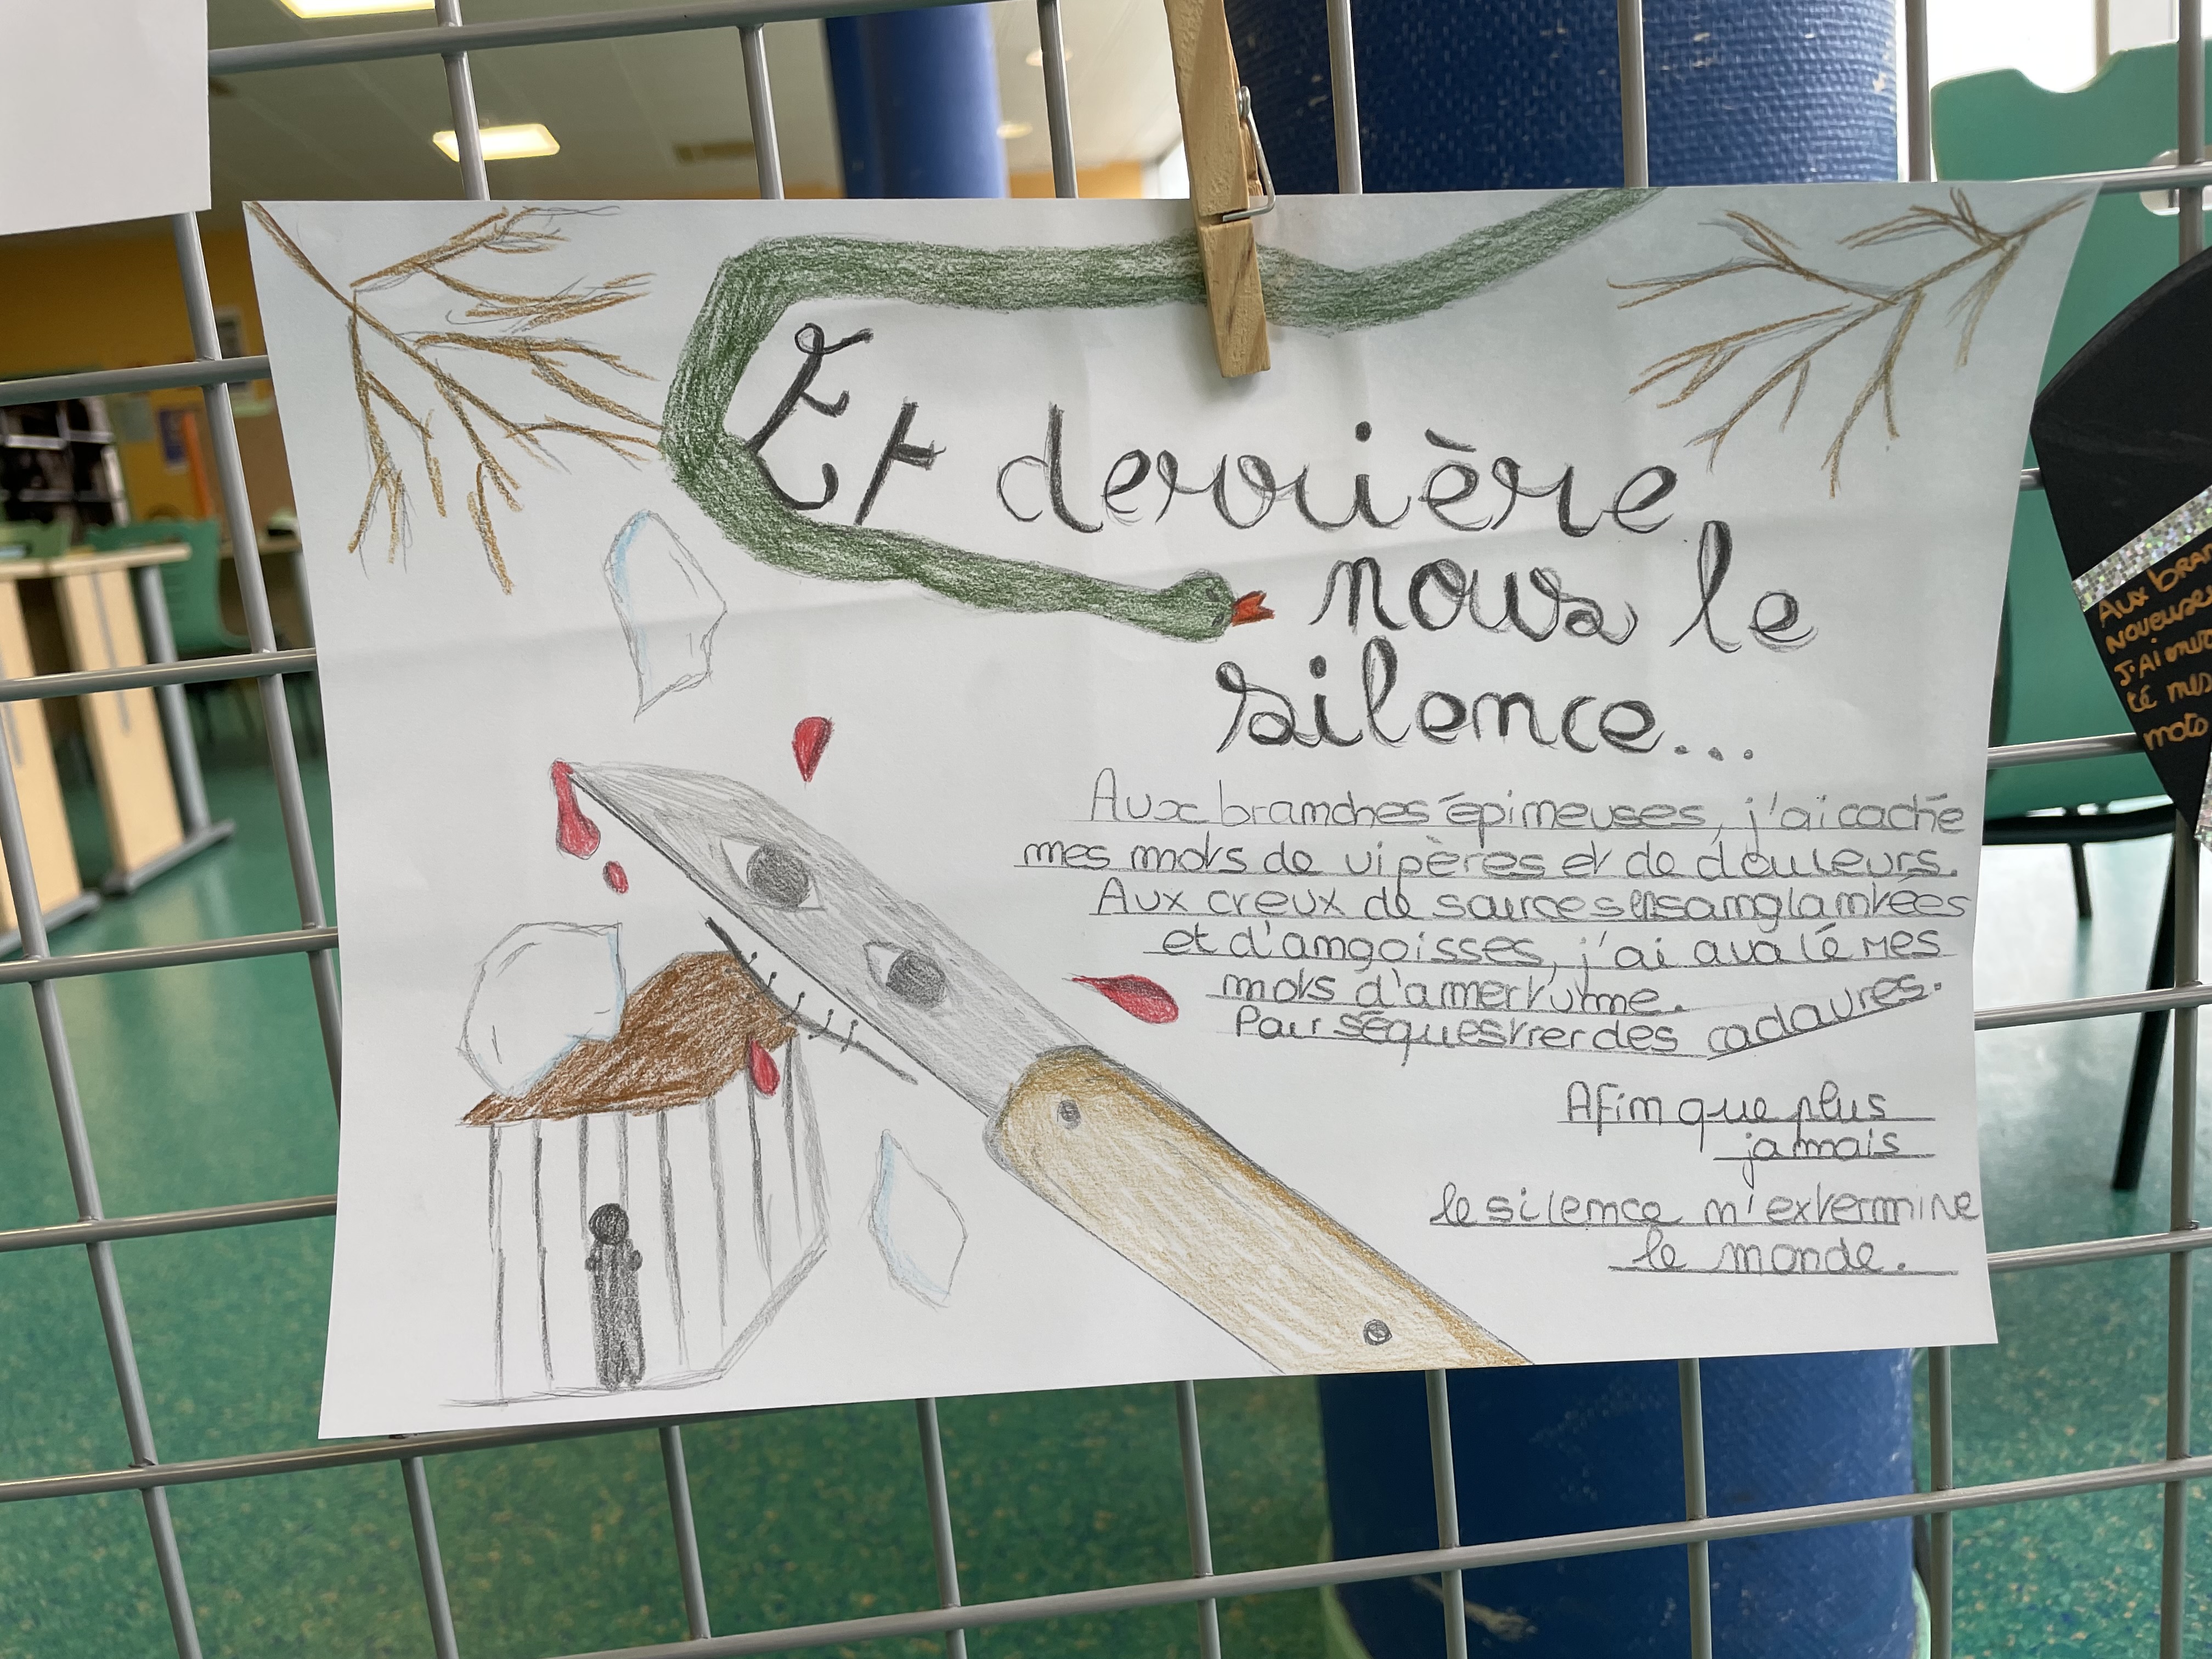 Et derrière
nous le
silence...
Aux branches épineuses, j'ai caché
mes mots de vipères et de douleurs.
Aux creux de sources ensanglantées
et d'angoisses, j'ai avalé mes
mots d'amertume.
Pour séquestrer des cadavres.
Afin que plus
jamais
le silence n'extermine
le monde.
Aux
J'Ai
té mes
mots